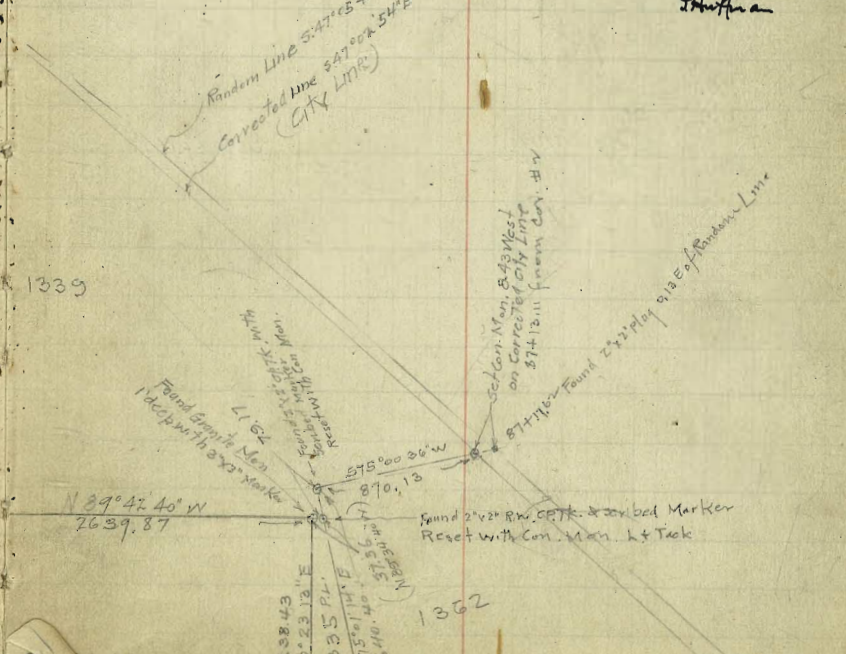 J. Huffman
Random Line S.47°
Corrected Line S47°02'54"E
(City Line)
1339
Set Con. Mon. 8.43 West
on Corrected City Line
87+13.11 from Cor. #2
87+17.62 Found 2"x2" Plug 0.13 E of Random Line
Reset with Con Mon.
79.17
Found Granite Mon
1' deep with 3"x3" Marker
S75°00'36"W
870.13
N 89°42'40" W
2639.87
Found 2"x2" R.W. C.P.Tk. & scribed Marker
Reset with Con. Mon. L & Tack
1362
38.43
° 23' 13" E
635 P.L.